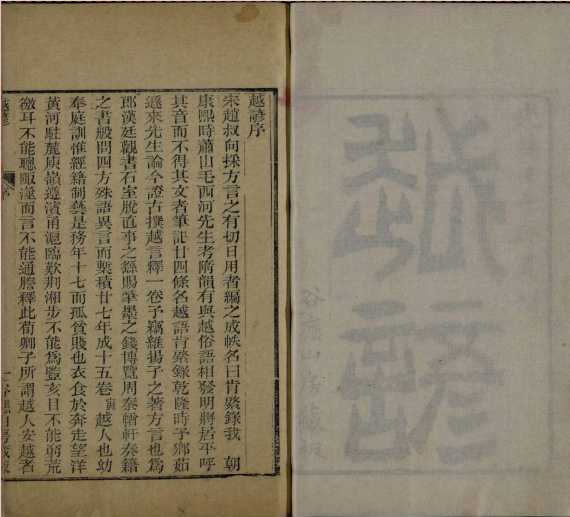 越諺
越諺序
宋趙叔向採方言之有切日用者編之成帙名曰肯綮錄我 朝
康熙時蕭山毛西河先生考隋韻有與越俗語相發明將居平呼
其音而不得其文者筆記廿四條名越語肯綮錄乾隆時予鄉茹
遜來先生論今證古撰越言釋一卷予竊維揚子之著方言也為
郎漢廷觀書石室脫直事之繇賜筆墨之錢博覽周秦輶軒奏籍
之書殷問四方殊語異言而槧積廿七年成十五卷寅越人也幼
奉庭訓惟經籍制藝是務年十七而孤貧賤也衣食於奔走望洋
黃河駐麓庾嶺遵濱甬滬臨歎荆湘步不能為豎亥目不能窮荒
徼耳不能聰販灋而言不能通謄釋此荀卿子所謂越人安越者
越諺 序